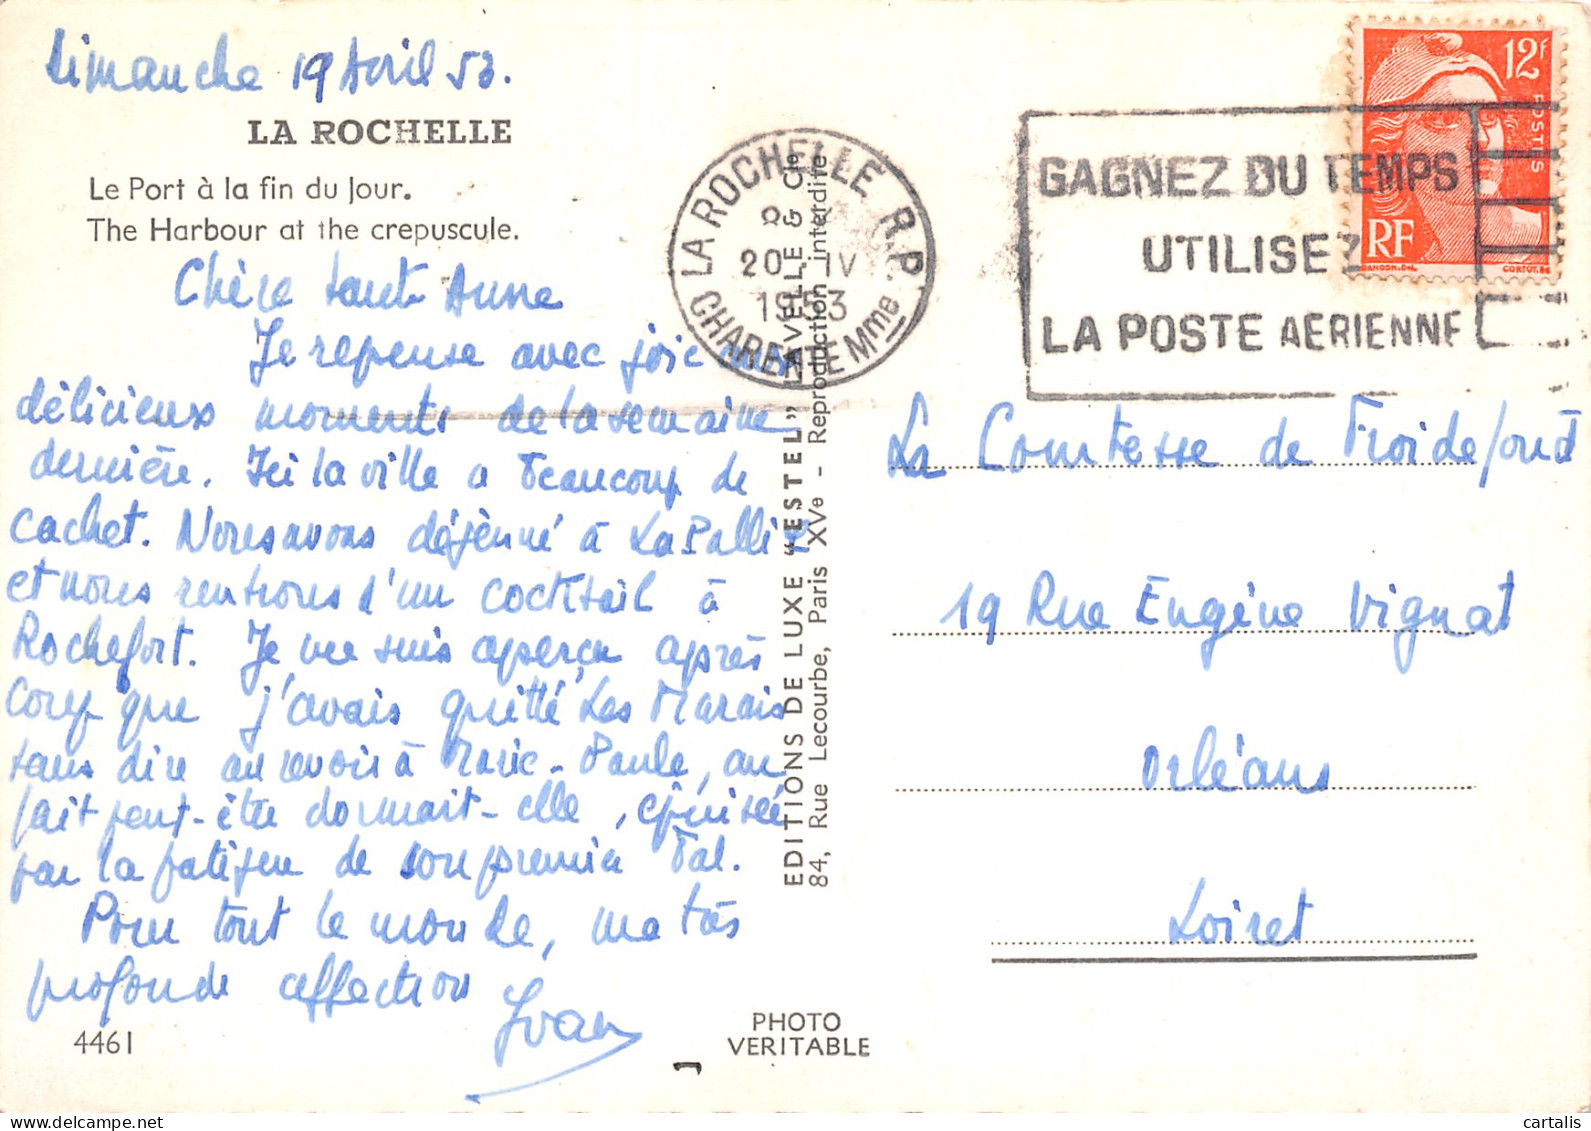 Dimanche 19 Avril 53.
LA ROCHELLE
Le Port à la fin du Jour.
The Harbour at the crepuscule.
Chère tante Anne
Je repense avec joie aux
délicieux moments de la semaine
dernière. Ici la ville a beaucoup de
cachet. Nous avons déjeuné à La Pallice
et nous rentrons d'un cocktail à
Rochefort. Je me suis aperçu après
coup que j'avais quitté Les Marais
sans dire au revoir à Marie-Paule, au
fait peut-être dormait-elle, épuisée
par la fatigue de son premier bal.
Pour tout le monde, ma très
profonde affection
Yvan
4461
EDITIONS DE LUXE "ESTEL" LAVELLE & Cie
84, Rue Lecourbe, Paris XVe - Reproduction interdite
PHOTO
VERITABLE
LA ROCHELLE R.P.
20 - IV
1953
CHARENTE Mme
GAGNEZ DU TEMPS
UTILISEZ
LA POSTE AERIENNE
12f
POSTES
RF
GANDON.DEL
CORTOT.SC
La Comtesse de Froidefond
19 Rue Eugène Vignat
Orléans
Loiret
cartalis.com